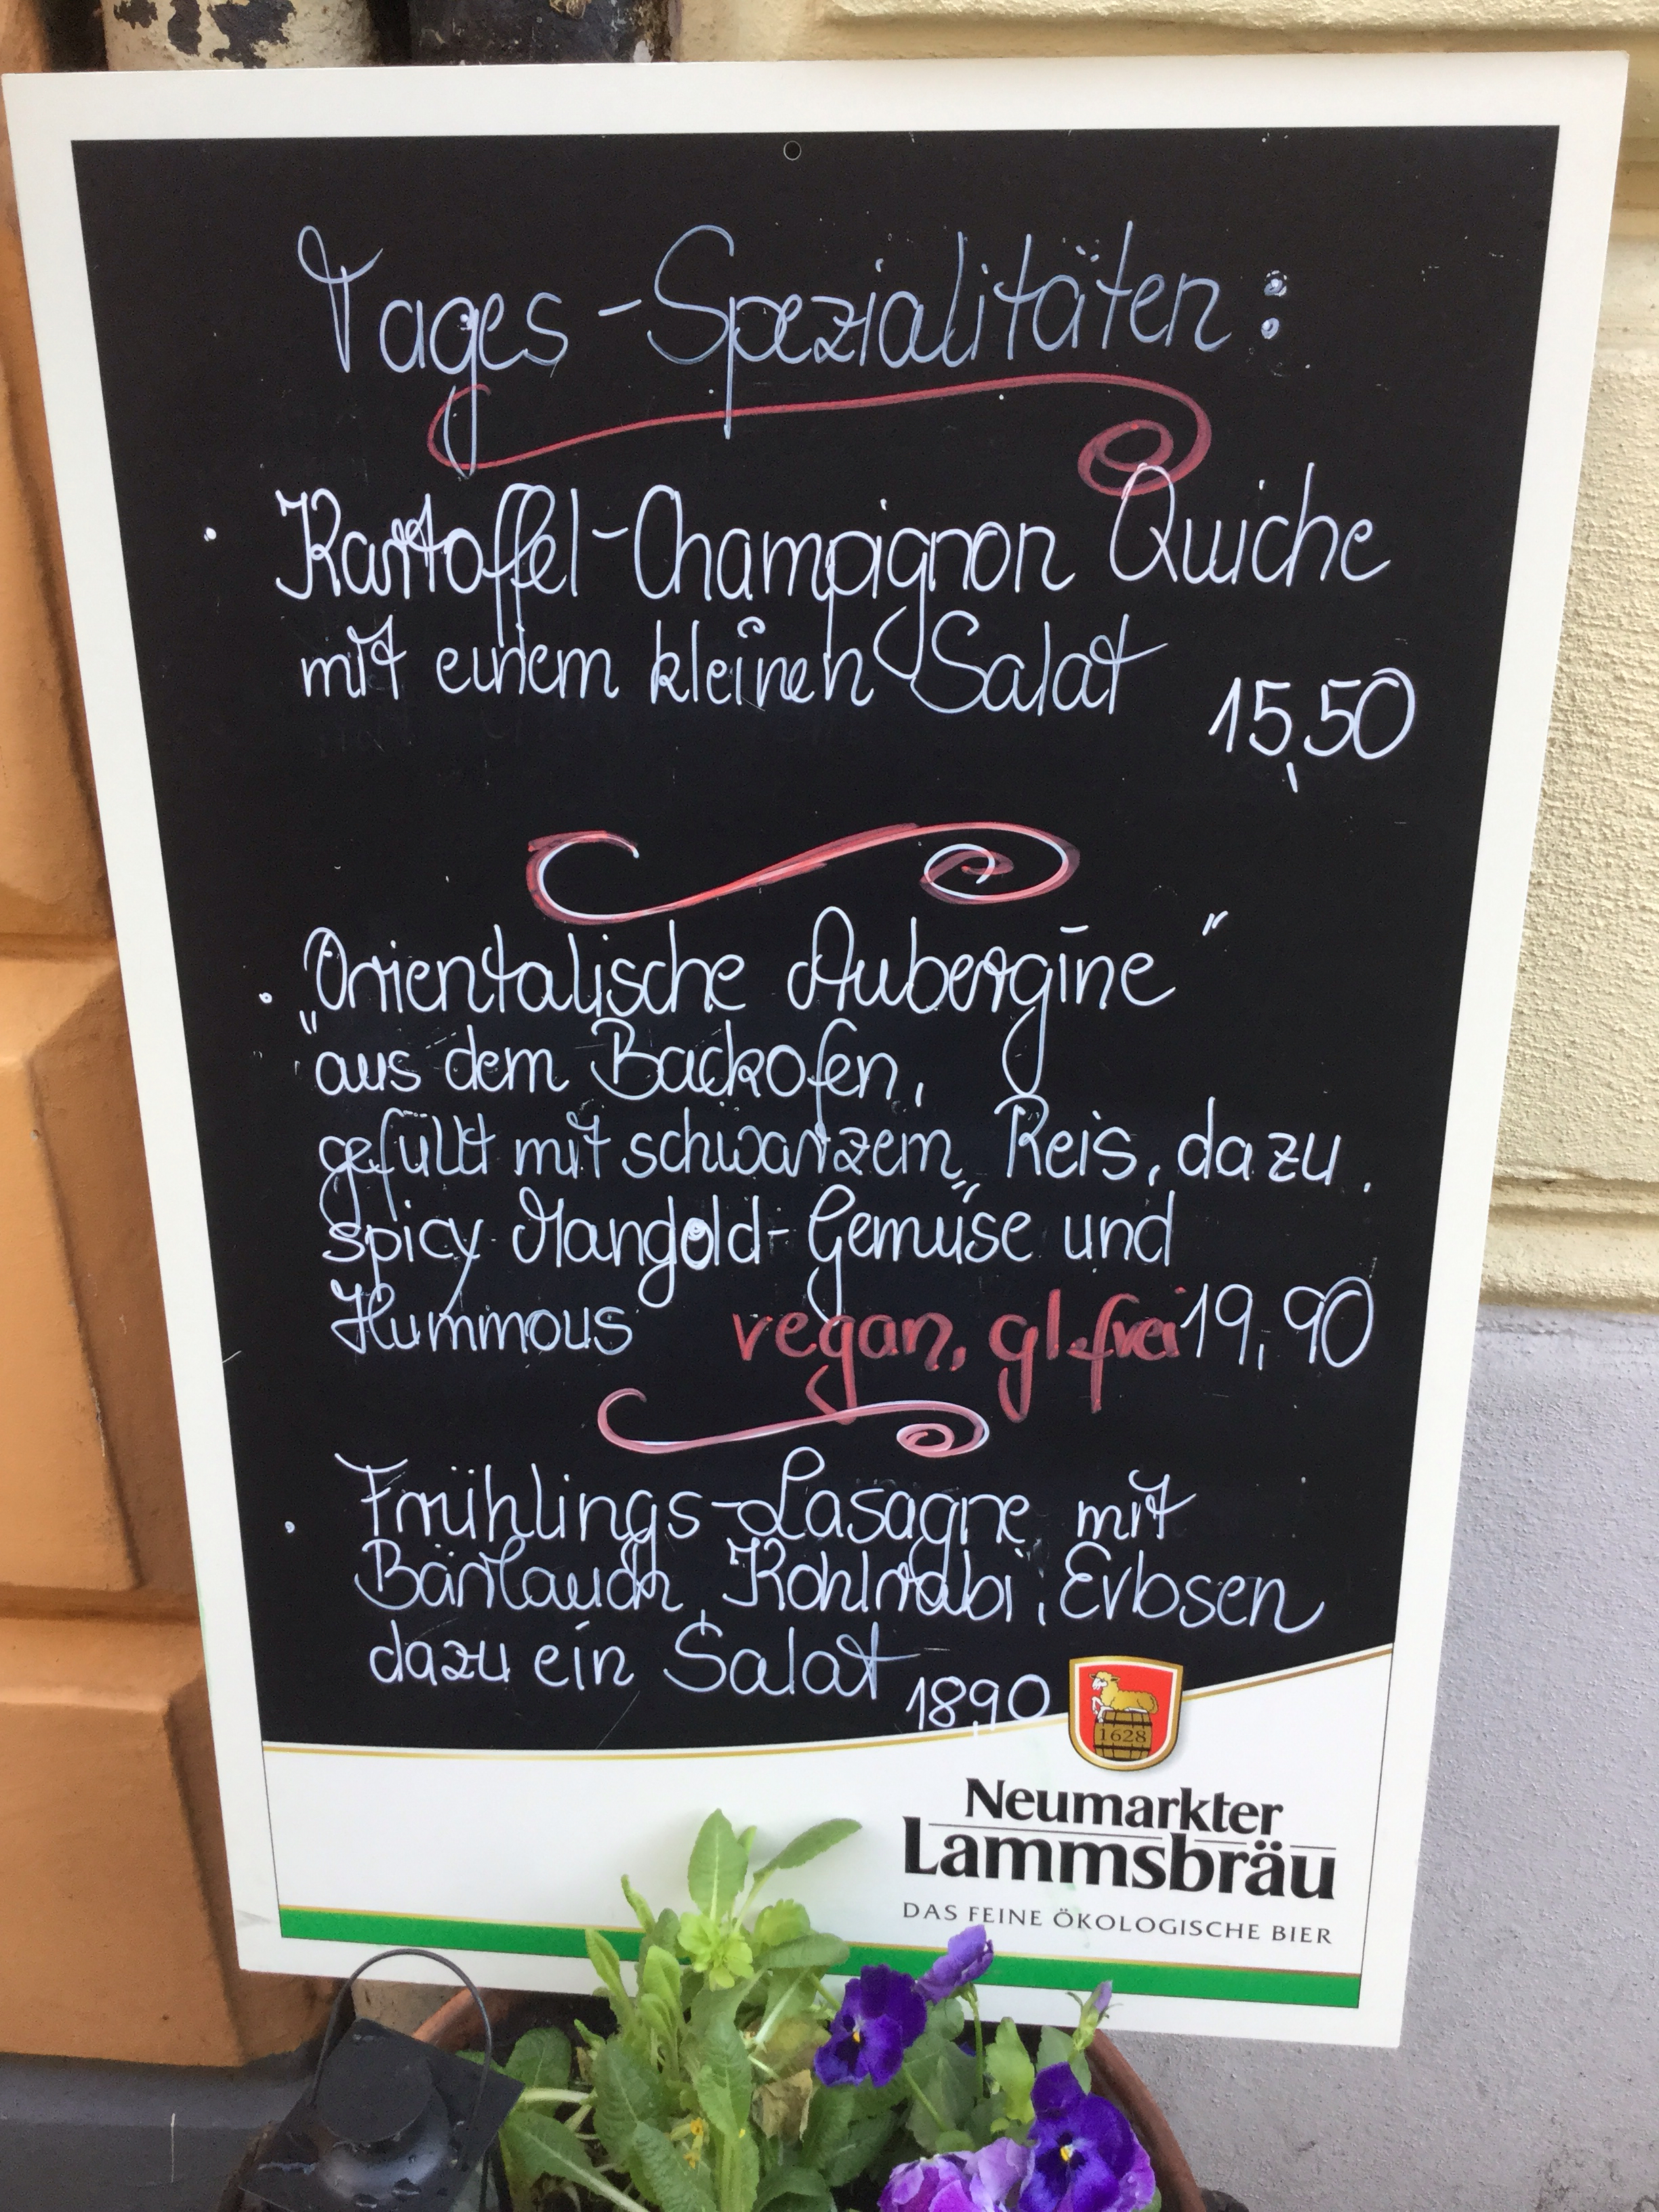 Tages-Spezialitäten:
· Kartoffel-Champignon Quiche
mit einem kleinen Salat
15,50
· „Orientalische Aubergine"
aus dem Backofen,
gefüllt mit schwarzem Reis, dazu
spicy Mangold-Gemüse und
Hummous vegan, gl.frei 19,90
· Frühlings-Lasagne mit
Bärlauch, Kohlrabi, Erbsen
dazu ein Salat 18,90
1628
Neumarkter
Lammsbräu
DAS FEINE ÖKOLOGISCHE BIER